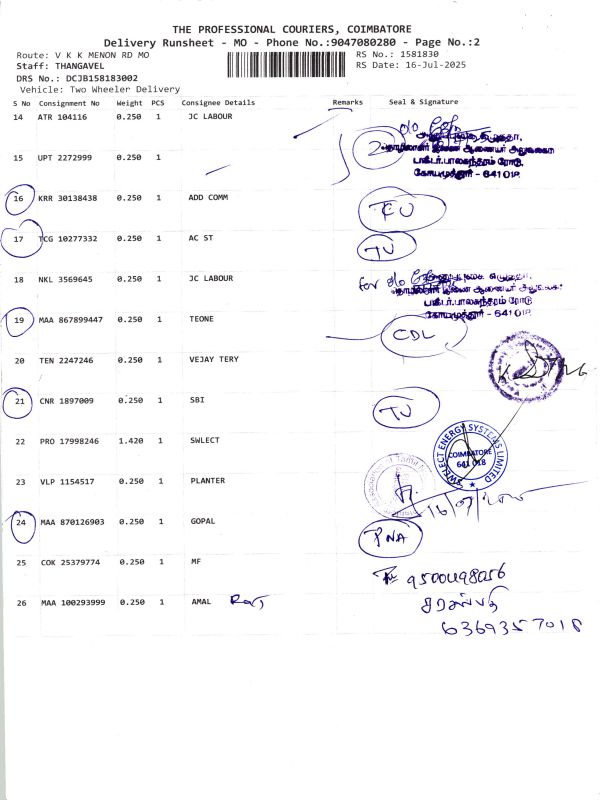 THE PROFESSIONAL COURIERS, COIMBATORE
Delivery Runsheet - MO - Phone No.:9047080280 - Page No.:2
Route: V K K MENON RD MO
RS No.: 1581830
Staff: THANGAVEL
RS Date: 16-Jul-2025
DRS No.: DCJB158183002
Vehicle: Two Wheeler Delivery
S No Consignment No Weight PCS Consignee Details Remarks Seal & Signature
14 ATR 104116 0.250 1 JC LABOUR
15 UPT 2272999 0.250 1 2
டாக்டர்.பாலசுந்தரம் ரோடு.
கோயமுத்தூர் - 641 018.
16 KRR 30138438 0.250 1 ADD COMM
17 TCG 10277332 0.250 1 AC ST TU
18 NKL 3569645 0.250 1 JC LABOUR for
டாக்டர்.பாலசுந்தரம் ரோடு
கோயமுத்தூர் - 641 018.
19 MAA 867899447 0.250 1 TEONE CDL
20 TEN 2247246 0.250 1 VEJAY TERY
21 CNR 1897009 0.250 1 SBI TU
22 PRO 17998246 1.420 1 SWLECT
SWELECT ENERGY SYSTEMS LIMITED
COIMBATORE
641 018
23 VLP 1154517 0.250 1 PLANTER
24 MAA 870126903 0.250 1 GOPAL PNA
25 COK 25379774 0.250 1 MF 9500498056
26 MAA 100293999 0.250 1 AMAL
6369357018